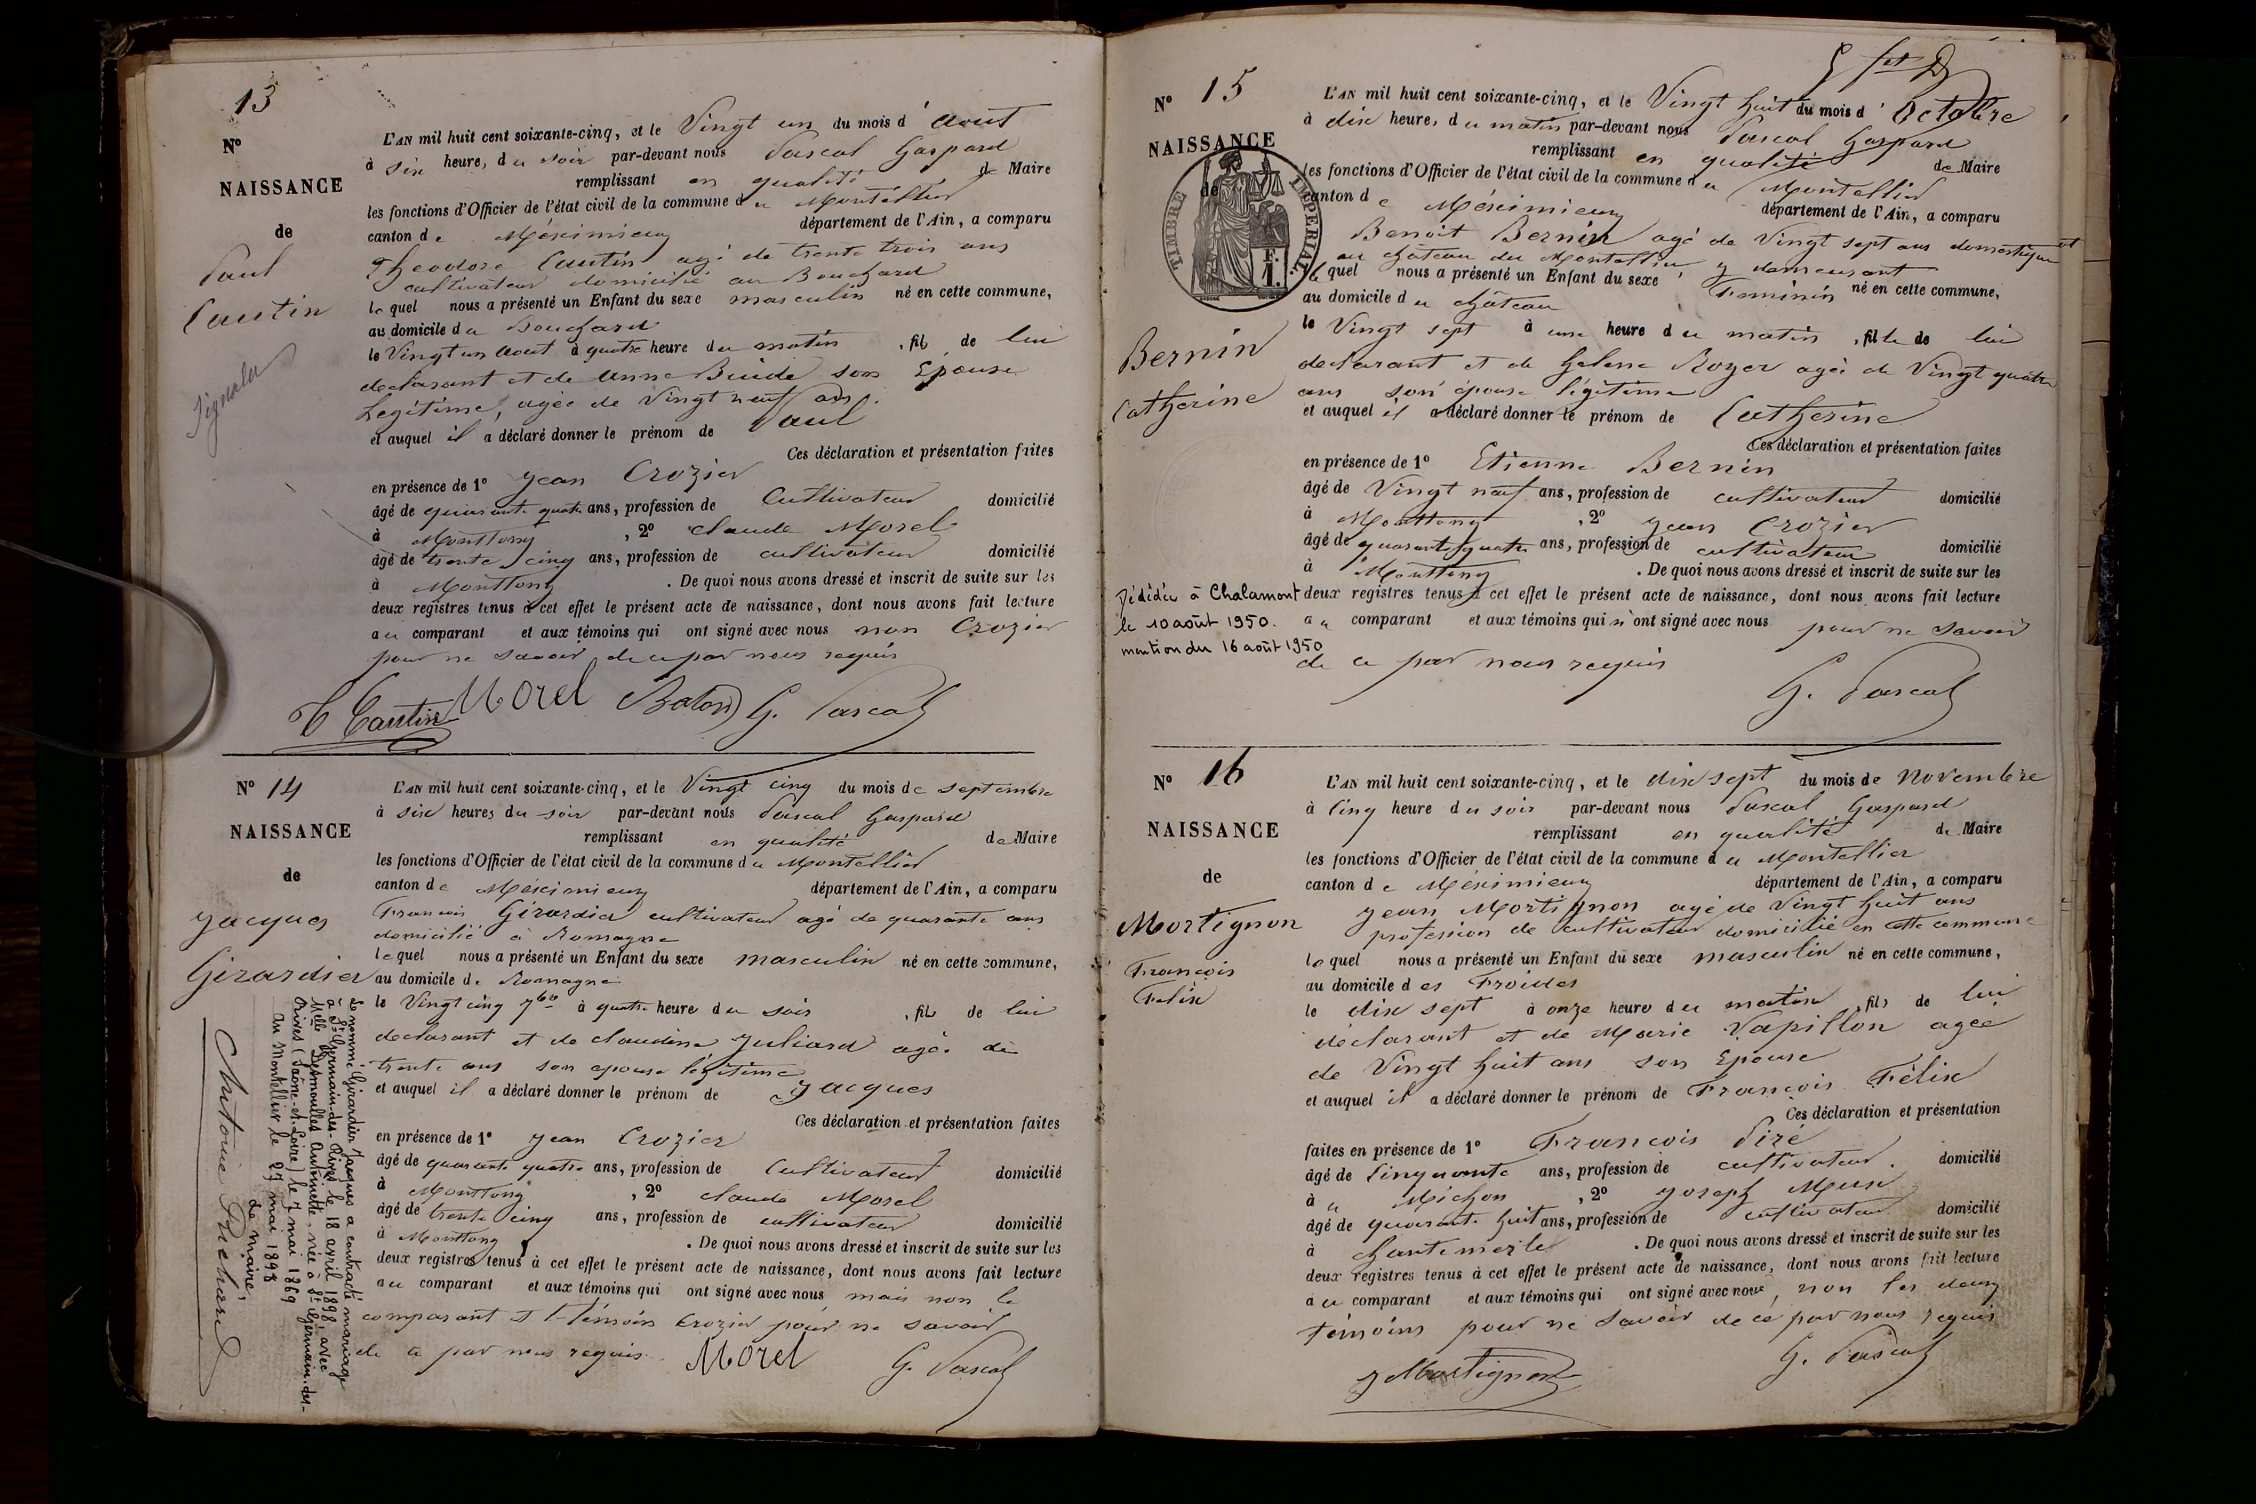 13
N°
NAISSANCE
de
Paul
Cautin
Signaler
L'AN mil huit cent soixante-cinq, et le Vingt un du mois d'Aout
à six heure, du soir par-devant nous Pascal Gaspard
remplissant en qualité de Maire
les fonctions d'Officier de l'état civil de la commune du Montellier
canton de Méximieux département de l'Ain, a comparu
Theodore Cautin agé de trente trois ans
cultivateur domicilié au Bouchard
lequel nous a présenté un Enfant du sexe masculin né en cette commune,
au domicile du Bouchard
le Vingt un Aout à quatre heure du matin, fils de lui
declarant et de Anne son Epouse
Legitime, agée de Vingt neuf ans.
et auquel il a déclaré donner le prénom de Paul
Ces déclaration et présentation faites
en présence de 1° Jean Crozier
âgé de quarante quatre ans, profession de Cultivateur domicilié
à Montlong, 2° Claude Morel
âgé de trente cinq ans, profession de cultivateur domicilié
à Montlong. De quoi nous avons dressé et inscrit de suite sur les
deux registres tenus à cet effet le présent acte de naissance, dont nous avons fait lecture
au comparant et aux témoins qui ont signé avec nous non Crozier
pour ne savoir de ce par nous requis
T Cautin Morel G. Pascal
N° 14
NAISSANCE
de
Jacques
Girardier
Le nommé Girardier Jacques a contracté mariage
à St Germain-des-Rives le 18 avril 1898, avec
Melle Desmoulles Antoinette, née à St Germain-des-
Rives (Saône-et-Loire) le 7 mai 1869
Au Montellier le 27 mai 1898
Le maire,
Antoine Richard
L'AN mil huit cent soixante-cinq, et le Vingt cinq du mois de septembre
à six heures du soir par-devant nous Pascal Gaspard
remplissant en qualité de Maire
les fonctions d'Officier de l'état civil de la commune du Montellier
canton de Méximieux département de l'Ain, a comparu
Francois Girardier cultivateur agé de quarante ans
domicilié à Romagne
lequel nous a présenté un Enfant du sexe masculin né en cette commune,
au domicile de Romagne
le Vingt cinq 7bre à quatre heure du soir, fils de lui
declarant et de Claudine Juliard agée de
trente ans son epouse légitime
et auquel il a déclaré donner le prénom de Jacques
Ces déclaration et présentation faites
en présence de 1° Jean Crozier
âgé de quarante quatre ans, profession de Cultivateur domicilié
à Montlong, 2° Claude Morel
âgé de trente cinq ans, profession de cultivateur domicilié
à Montlong. De quoi nous avons dressé et inscrit de suite sur les
deux registres tenus à cet effet le présent acte de naissance, dont nous avons fait lecture
au comparant et aux témoins qui ont signé avec nous mais non le
comparant et témoin Crozier pour ne savoir
de ce par nous requis.
Morel G. Pascal
N° 15
NAISSANCE
de
TIMBRE IMPERIAL
F.
1.
Bernin
Catherine
Décédée à Chalamont
le 10 août 1950.
mention du 16 août 1950
L'AN mil huit cent soixante-cinq, et le Vingt huit du mois d'Octobre
à dix heure, du matin par-devant nous Pascal Gaspard
remplissant en qualité de Maire
les fonctions d'Officier de l'état civil de la commune du Montellier
canton de Méximieux département de l'Ain, a comparu
Benoit Bernin agé de Vingt sept ans domestique
au château du Montellier y demeurant
lequel nous a présenté un Enfant du sexe Feminin né en cette commune,
au domicile du château
le Vingt sept à une heure du matin, fille de lui
declarant et de Helene Royer agée de Vingt quatre
ans son épouse légitime
et auquel il a déclaré donner le prénom de Catherine
Ces déclaration et présentation faites
en présence de 1° Etienne Bernin
âgé de Vingt neuf ans, profession de cultivateur domicilié
à Montlong, 2° Jean Crozier
âgé de quarante quatre ans, profession de cultivateur domicilié
à Montlong. De quoi nous avons dressé et inscrit de suite sur les
deux registres tenus à cet effet le présent acte de naissance, dont nous avons fait lecture
au comparant et aux témoins qui n'ont signé avec nous pour ne savoir
de ce par nous requis
G. Pascal
N° 16
NAISSANCE
de
Mortignon
François
Felix
L'AN mil huit cent soixante-cinq, et le dix sept du mois de Novembre
à Cinq heure du soir par-devant nous Pascal Gaspard
remplissant en qualité de Maire
les fonctions d'Officier de l'état civil de la commune du Montellier
canton de Méximieux département de l'Ain, a comparu
Jean Mortignon agé de Vingt huit ans
profession de cultivateur domicilié en cette commune
lequel nous a présenté un Enfant du sexe masculin né en cette commune,
au domicile des Froides
le dix sept à onze heure du matin, fils de lui
déclarant et de Marie Papillon agée
de Vingt huit ans son Epouse
et auquel il a déclaré donner le prénom de François Félix
Ces déclaration et présentation
faites en présence de 1° Francois Piré
âgé de Cinquante ans, profession de cultivateur. domicilié
à Michon, 2° Joseph
âgé de quarante huit ans, profession de cultivateur domicilié
à Chantemerle. De quoi nous avons dressé et inscrit de suite sur les
deux registres tenus à cet effet le présent acte de naissance, dont nous avons fait lecture
au comparant et aux témoins qui ont signé avec nous, non les deux
témoins pour ne savoir de ce par nous requis
J Mortignon G. Pascal